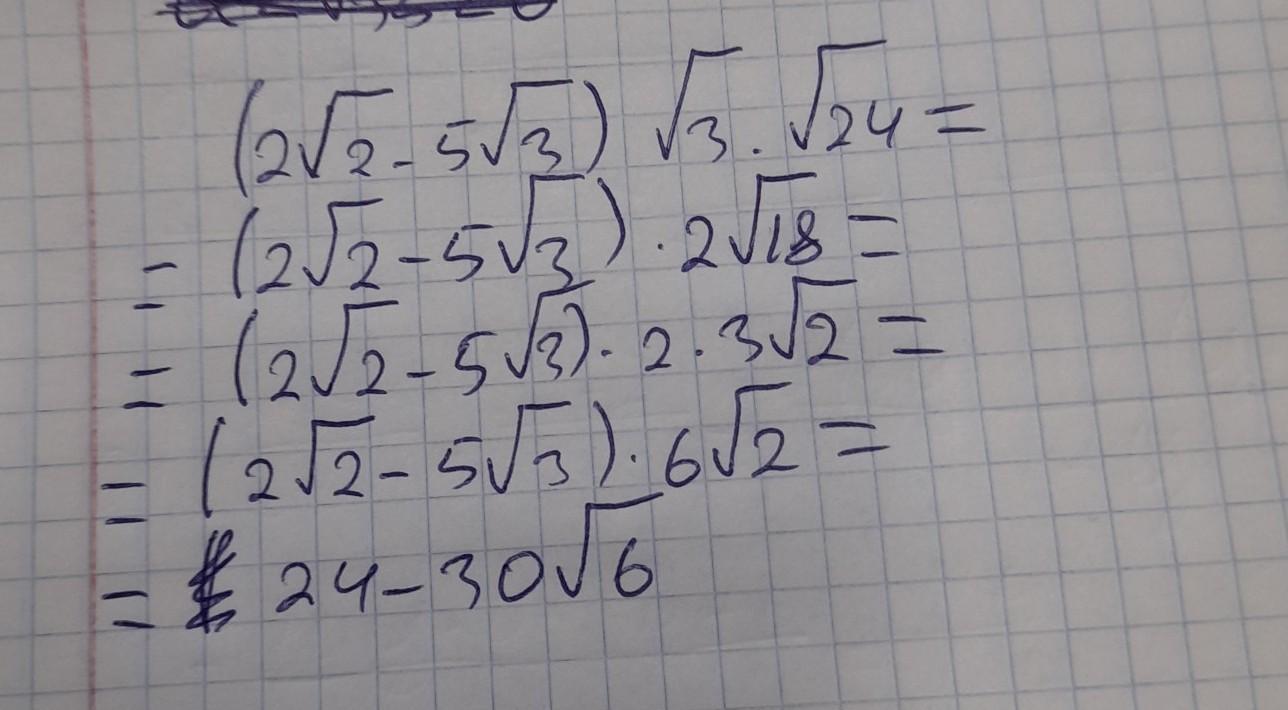 (2√2 - 5√3) √3 · √24 =
= (2√2 - 5√3) · 2√18 =
= (2√2 - 5√3) · 2 · 3√2 =
= (2√2 - 5√3) · 6√2 =
= 24 - 30√6